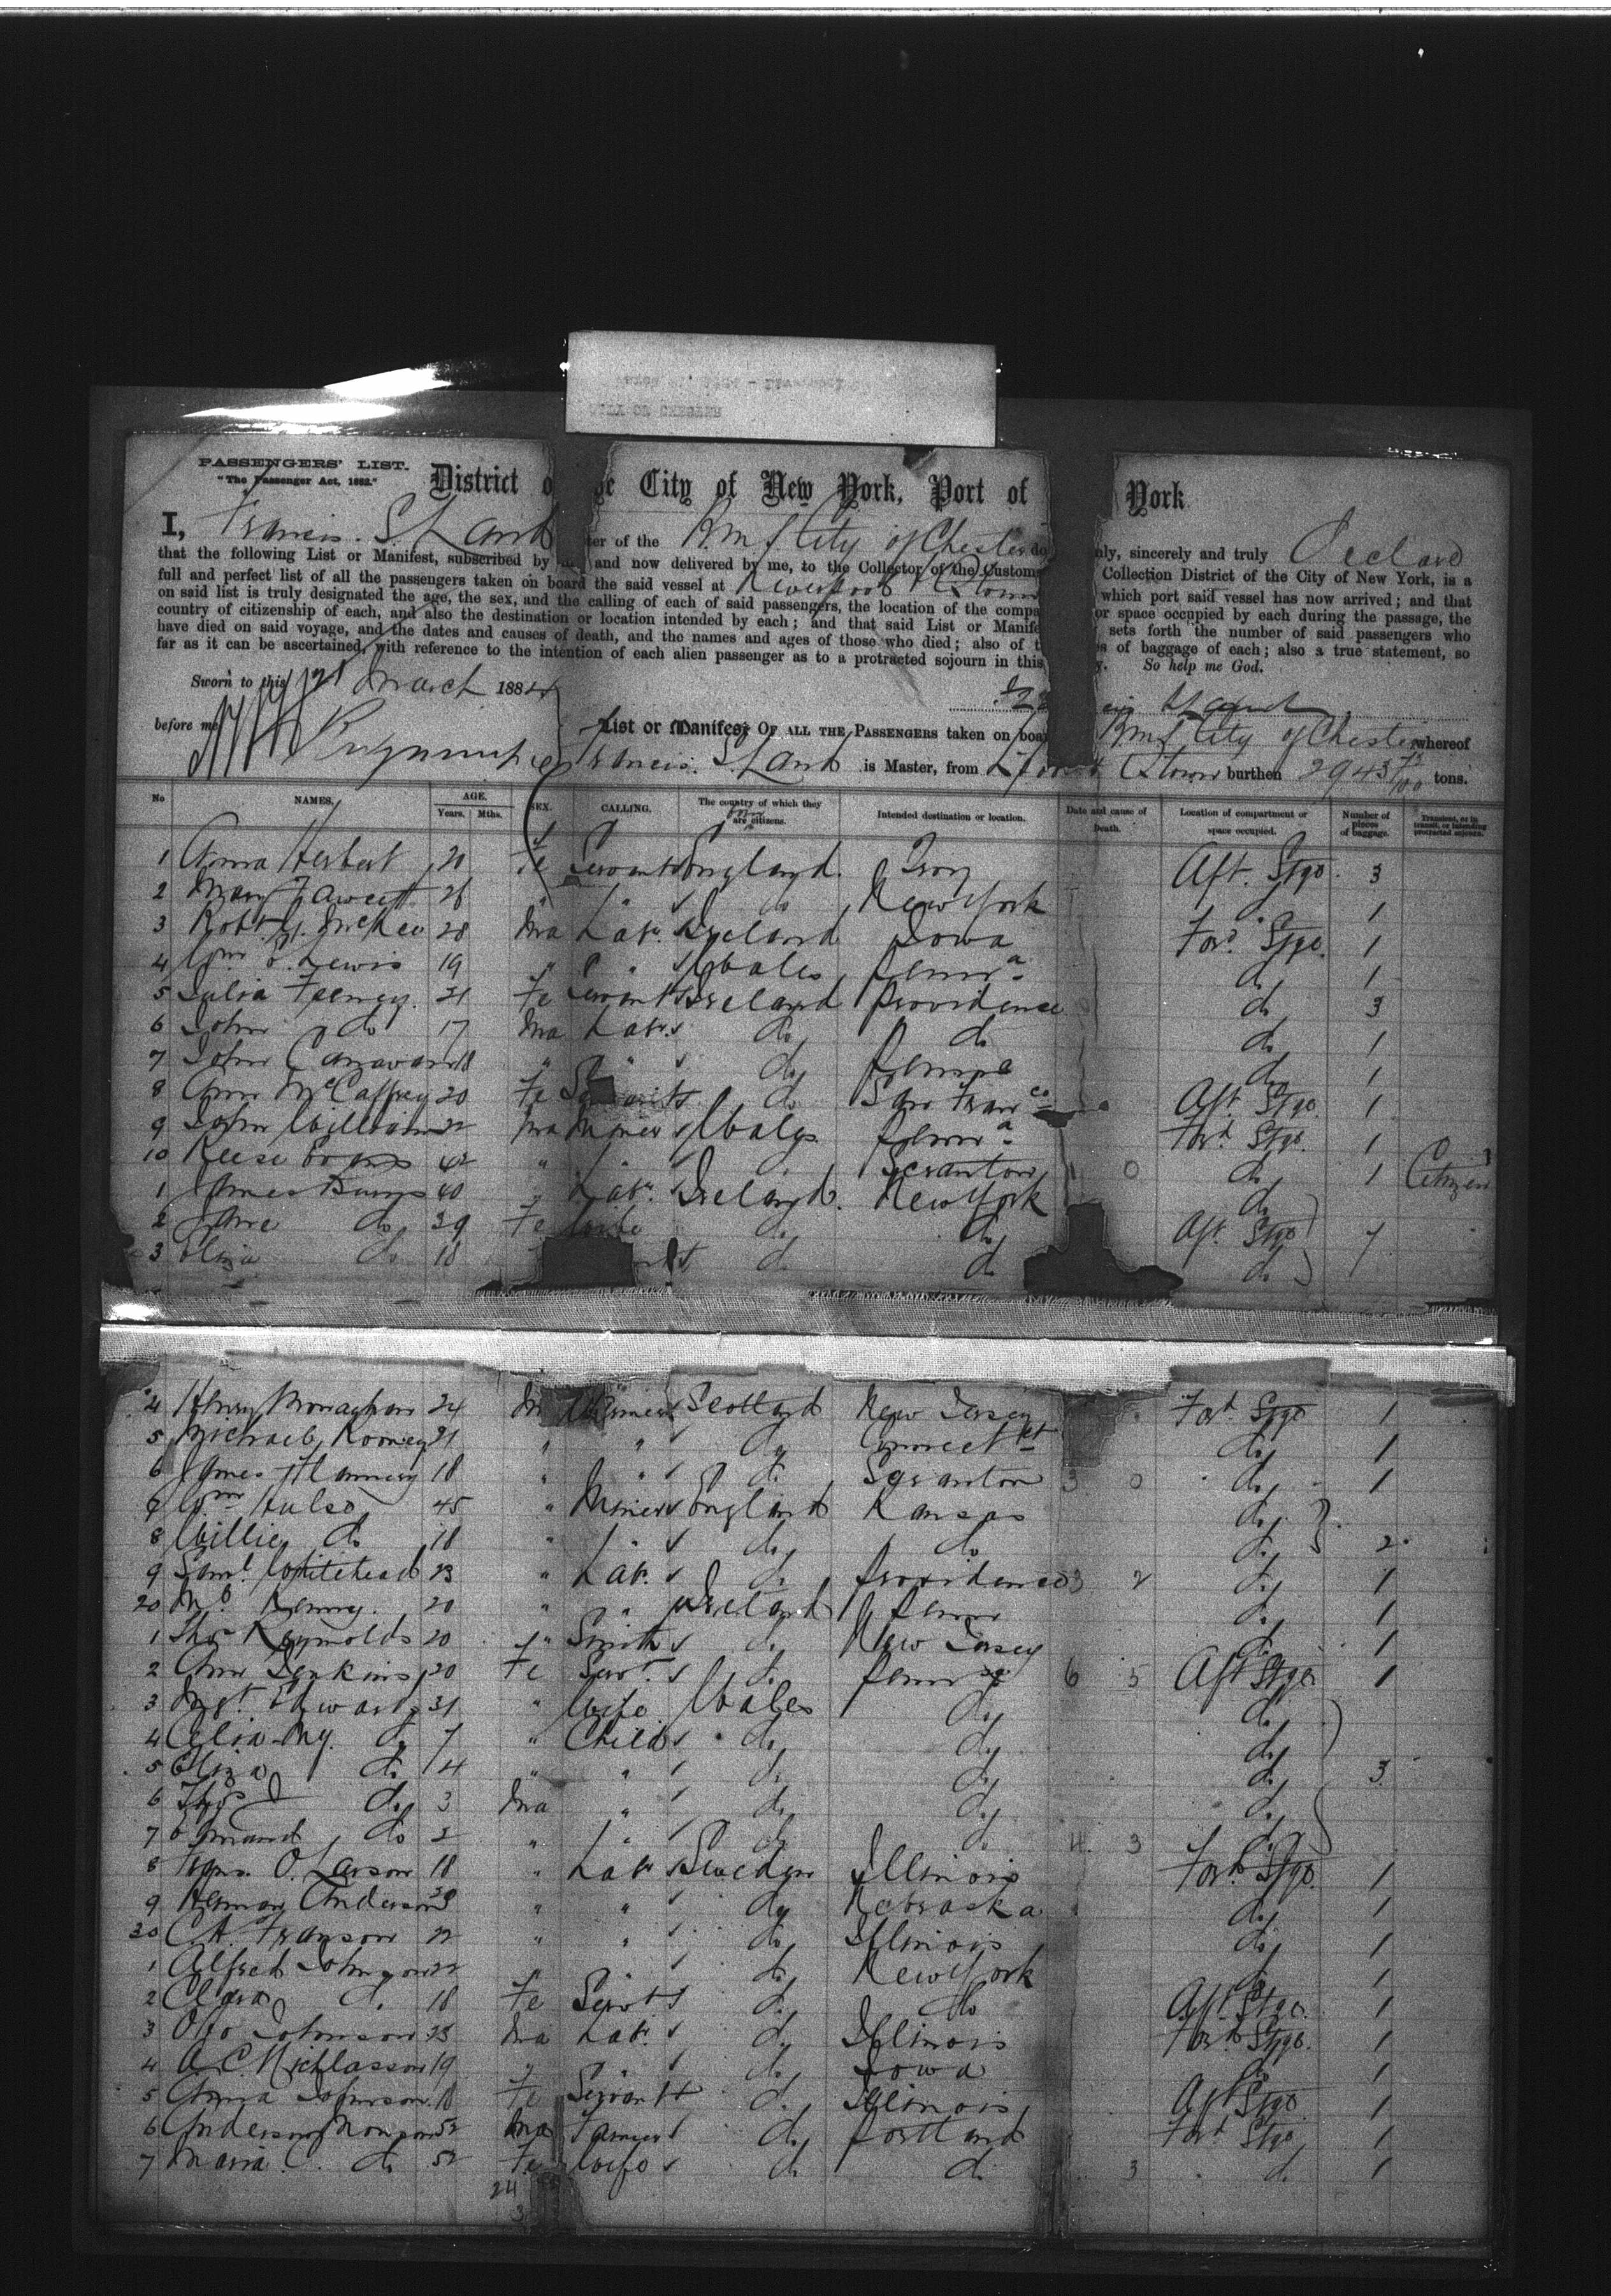 PASSENGERS' LIST.
"The Passenger Act, 1882."
District o e City of New York, Port of York
I, Francis S. Land ter of the R.M.S City of Chester do nly, sincerely and truly Declare
that the following List or Manifest, subscribed by and now delivered by me, to the Collector of the Customs Collection District of the City of New York, is a
full and perfect list of all the passengers taken on board the said vessel at Liverpool & Qtown which port said vessel has now arrived; and that
on said list is truly designated the age, the sex, and the calling of each of said passengers, the location of the compa or space occupied by each during the passage, the
country of citizenship of each, and also the destination or location intended by each; and that said List or Manife sets forth the number of said passengers who
have died on said voyage, and the dates and causes of death, and the names and ages of those who died; also of t s of baggage of each; also a true statement, so
far as it can be ascertained, with reference to the intention of each alien passenger as to a protracted sojourn in this y. So help me God.
Sworn to this March 1884
before me
List or Manifest OF ALL THE PASSENGERS taken on boa RMS City of Chester whereof
Francis S Land is Master, from Qtown burthen 2943 72/100 tons.
No NAMES, AGE. Years. Mths. SEX. CALLING. The country of which they are citizens. born Intended destination or location. Date and cause of Death. Location of compartment or space occupied. Number of pieces of baggage. Transient, or in transit, or intending protracted sojourn.
1 Anna Herbert 20 Fe Servant England Troy Aft. Stge 3
2 Mary Fawcett 26 " " do New York " 1
3 Robt 28 Ma Labr Ireland Iowa Ford Stge. 1
4 Wm Lewis 19 " " Wales Penna do 1
5 Julia Feeney 21 Fe Servant Ireland Providence do 3
6 John do 17 Ma Labr do do do 1
7 John 18 " " do Penna do 1
8 Ann McCaffrey 20 Fe do San Franco Aft Stge 1
9 John Williams 22 Ma Miner Wales Penna Ford Stge. 1
10 Reese Evans 42 " " " Scranton 1 0 do 1 Citizen
1 James Burns 40 Labr. Ireland New York do
2 Jane do 39 Fe Wife do do Aft Stge 7
3 Eliza do 18 do do do
4 Henry Monaghan 24 M Scotland New Jersey Ford Stge 1
5 Michael Rooney 21 " " do Connectct do 1
6 James Flannery 18 " " do Scranton 3 0 do 1
7 Wm Hulse 45 " Miner England Kansas do
8 Willie do 18 " " do do do 2
9 Saml Whitehead 23 " Labr. do Providence 3 2 do 1
20 Kenny 20 " " Ireland Penn do 1
1 Thos Reynolds 20 " Smith do New Jersey do 1
2 Ann Jenkins 20 Fe Servt do Penn 6 5 Aft Stge 1
3 Mgt Edwards 31 " Wife Wales do do
4 Celia My. do 7 " Child do do do
5 Eliza do 4 " " do do do 3
6 Thos do 3 Ma " do do do
7 do 2 " " do do 4 3 do
8 O. Larson 18 " Labr Sweden Illinois Ford Stge 1
9 Herman Anderson " " do Nebraska do 1
30 C.A. Franson 22 " " do Illinois do 1
1 Alfred Johnson 22 " " do New York do 1
2 Clara do 18 Fe Servt do do Aft Stge 1
3 Otto Johnson 25 Ma Labr do Illinois Ford Stge. 1
4 A C Nicklasson 19 " " do Iowa do 1
5 Anna Johnson 18 Fe Servant do Illinois Aft Stge 1
6 Anderson 52 Ma Farmer do Portland Ford Stge 1
7 Maria C. do 52 Fe Wife do do 3 do 1
24
3